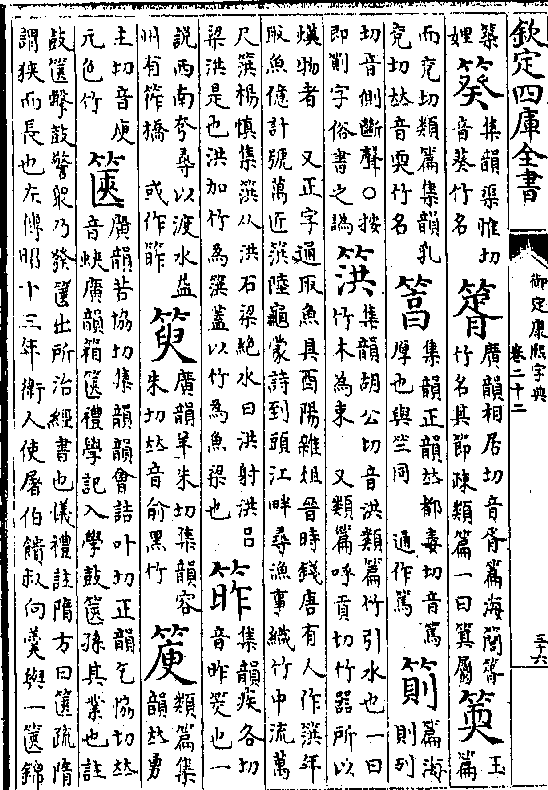 欽定四庫全書
御定康熙字典
卷二十二
三十六
築娌 集韻渠惟切音葵竹名 䈝 廣韻相居切音胥篇海簡䈝竹名其節疎類篇一曰箕屬 玉篇
而兖切類篇集韻乳兖切𠀤音耎竹名 䈞 集韻正韻𠀤都毒切音篤厚也與竺同 通作篤 䈟 篇海則列
切音側斷聲○按即劕字俗書之譌 篊 集韻胡公切音洪類篇竹引水也一曰竹木為束 又類篇呼貢切竹器所以
熯物者 又正字通取魚具酉陽雜俎晉時錢唐有人作篊年取魚億計號萬近篊陸龜蒙詩到頭江畔尋漁事織竹中流萬
尺篊楊慎集篊从洪石梁絶水曰洪射洪呂梁洪是也洪加竹為篊蓋以竹為魚梁也 集韻疾各切音昨筊也一
説西南夷尋以渡水益州有筰橋 或作 廣韻羊朱切集韻容朱切𠀤音俞黑竹 類篇集韻𠀤勇
主切音庾元色竹 篋 廣韻苦協切集韻韻會詰叶切正韻乞協切𠀤音㛍廣韻箱篋禮學記入學鼓篋孫其業也註
鼓篋擊鼓警衆乃發篋出所治經書也儀禮註隋方曰篋疏隋謂狹而長也左傳昭十三年衛人使屠伯饋叔向羮與一篋錦